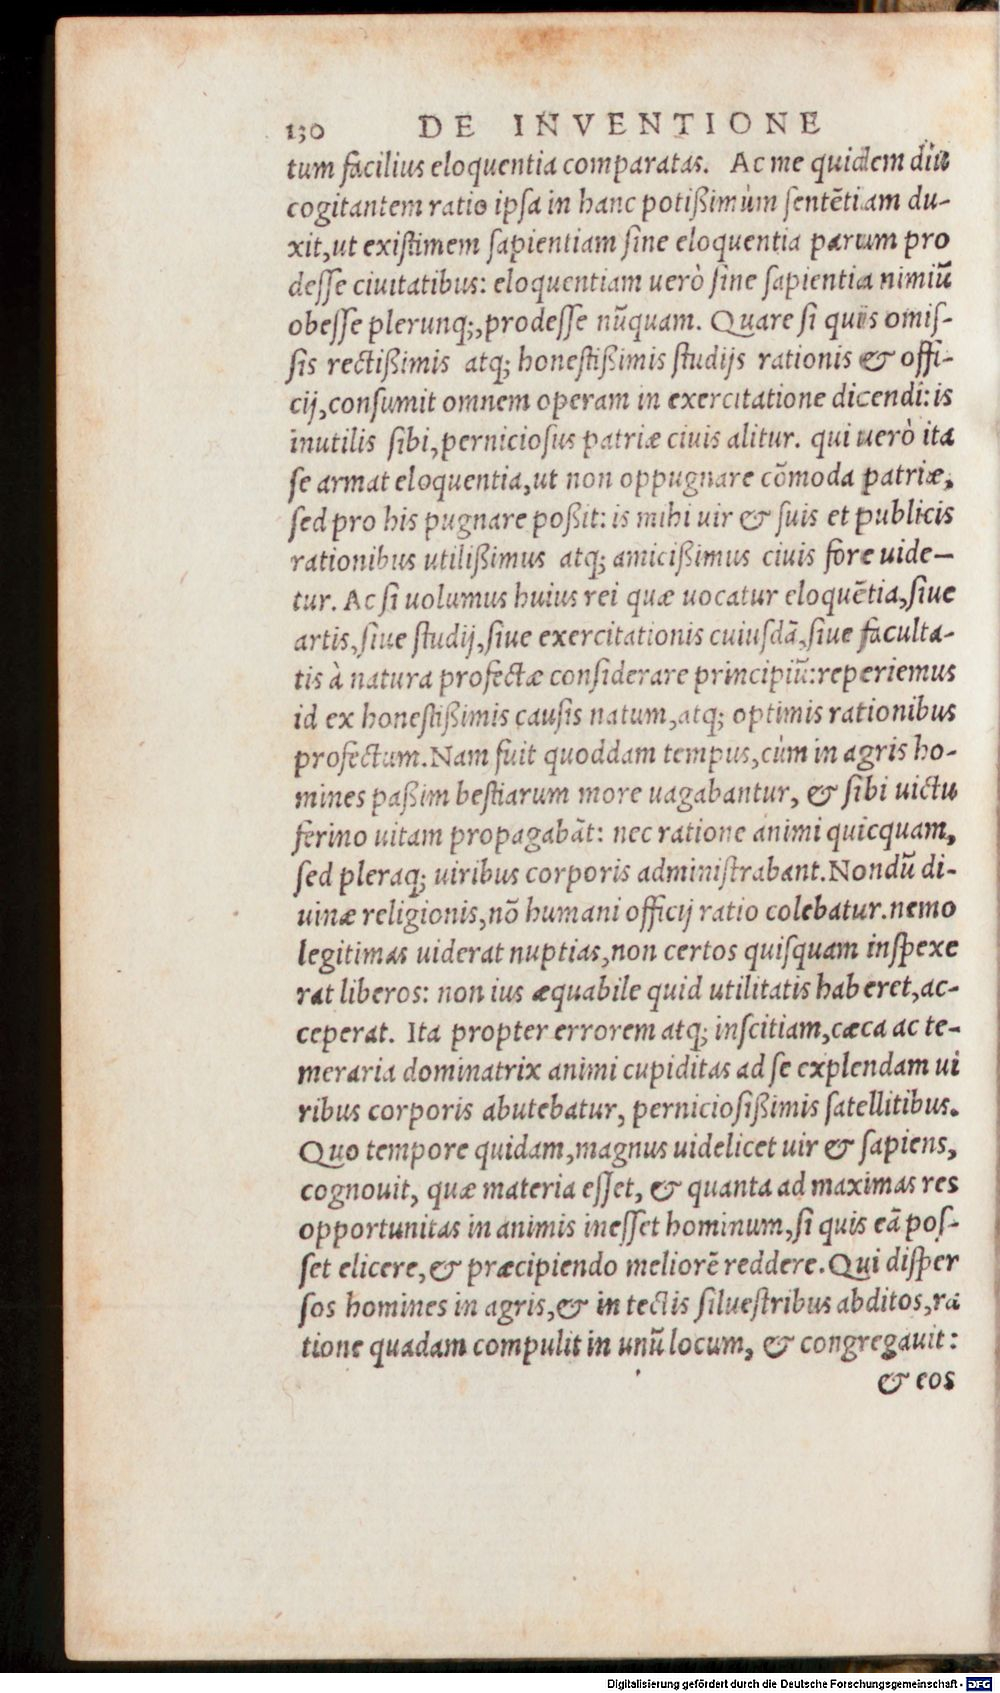 130 DE INVENTIONE
tum facilius eloquentia comparatas. Ac me quidem diu
cogitantem ratio ipſa in hanc potißimùm ſentẽtiam du-
xit, ut exiſtimem ſapientiam ſine eloquentia parum pro
deſſe ciuitatibus: eloquentiam uerò ſine ſapientia nimiũ
obeſſe plerunq;, prodeſſe nũquam. Quare ſi quis omiſ-
ſis rectißimis atq; honeſtißimis ſtudijs rationis & offi-
cij, conſumit omnem operam in exercitatione dicendi: is
inutilis ſibi, pernicioſus patriæ ciuis alitur. qui uerò ita
ſe armat eloquentia, ut non oppugnare cõmoda patriæ,
ſed pro his pugnare poßit: is mihi uir & ſuis et publicis
rationibus utilißimus atq; amicißimus ciuis fore uide-
tur. Ac ſi uolumus huius rei quæ uocatur eloquẽtia, ſiue
artis, ſiue ſtudij, ſiue exercitationis cuiuſdã, ſiue faculta-
tis à natura profectæ conſiderare principiũ: reperiemus
id ex honeſtißimis cauſis natum, atq; optimis rationibus
profectum. Nam fuit quoddam tempus, cùm in agris ho-
mines paßim beſtiarum more uagabantur, & ſibi uictu
ferino uitam propagabãt: nec ratione animi quicquam,
ſed pleraq; uiribus corporis adminiſtrabant. Nondũ di-
uinæ religionis, nõ humani officij ratio colebatur. nemo
legitimas uiderat nuptias, non certos quiſquam inſpexe
rat liberos: non ius æquabile quid utilitatis haberet, ac-
ceperat. Ita propter errorem atq; inſcitiam, cæca ac te-
meraria dominatrix animi cupiditas ad ſe explendam ui
ribus corporis abutebatur, pernicioſißimis ſatellitibus.
Quo tempore quidam, magnus uidelicet uir & ſapiens,
cognouit, quæ materia eſſet, & quanta ad maximas res
opportunitas in animis ineſſet hominum, ſi quis eã poſ-
ſet elicere, & præcipiendo meliorẽ reddere. Qui diſper
ſos homines in agris, & in tectis ſilueſtribus abditos, ra
tione quadam compulit in unũ locum, & congregauit:
& eos
Digitalisierung gefördert durch die Deutsche Forschungsgemeinschaft - DFG